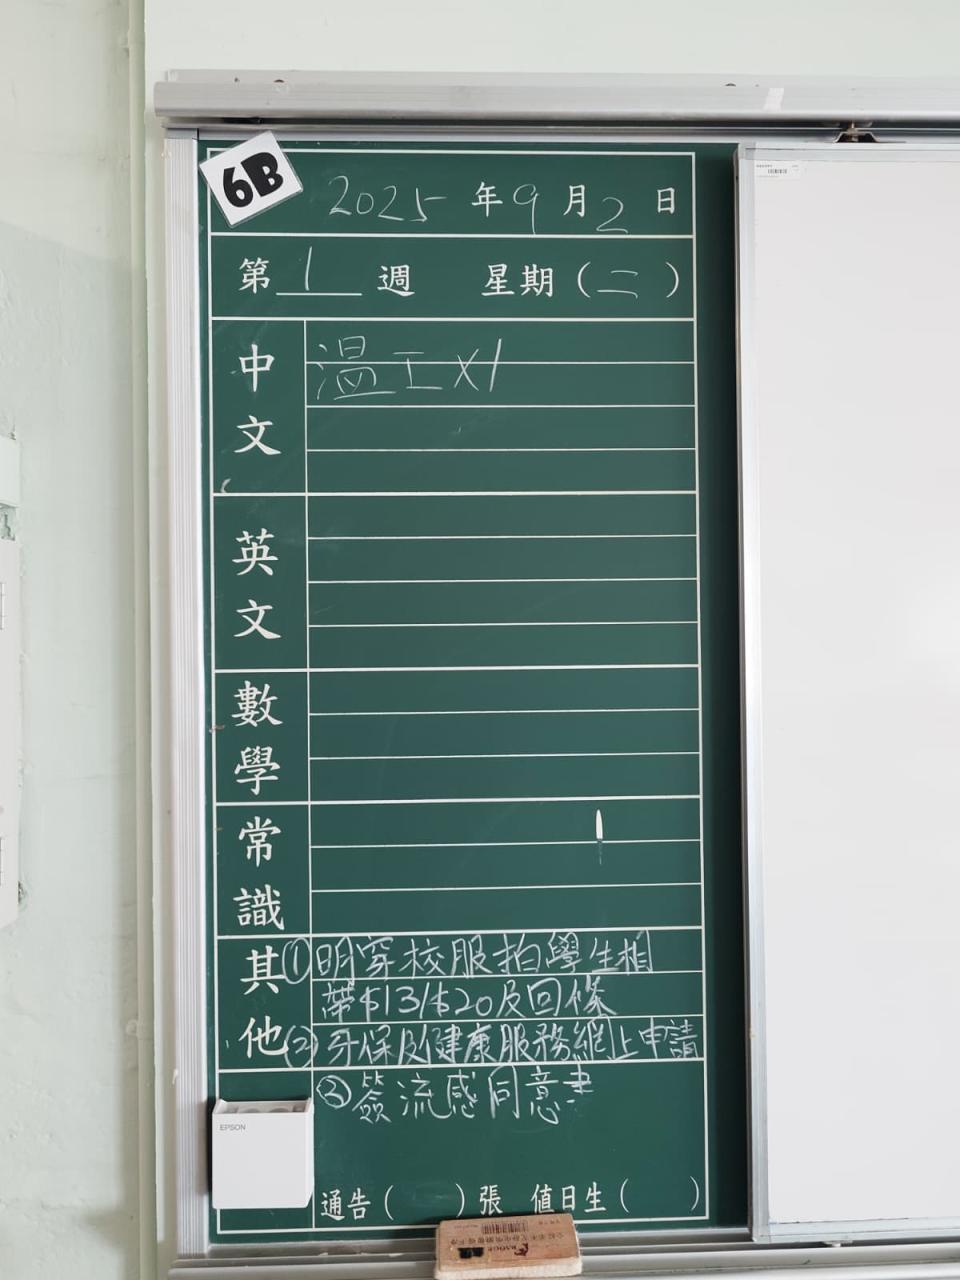 6B
2025年9月2日
第1週 星期(二)
中文
温工X1
英文
數學
常識
其他
①明穿校服拍學生相
帶$13/$20及回條
②牙保及健康服務網上申請
③簽流感同意書
EPSON
通告( )張 值日生( )